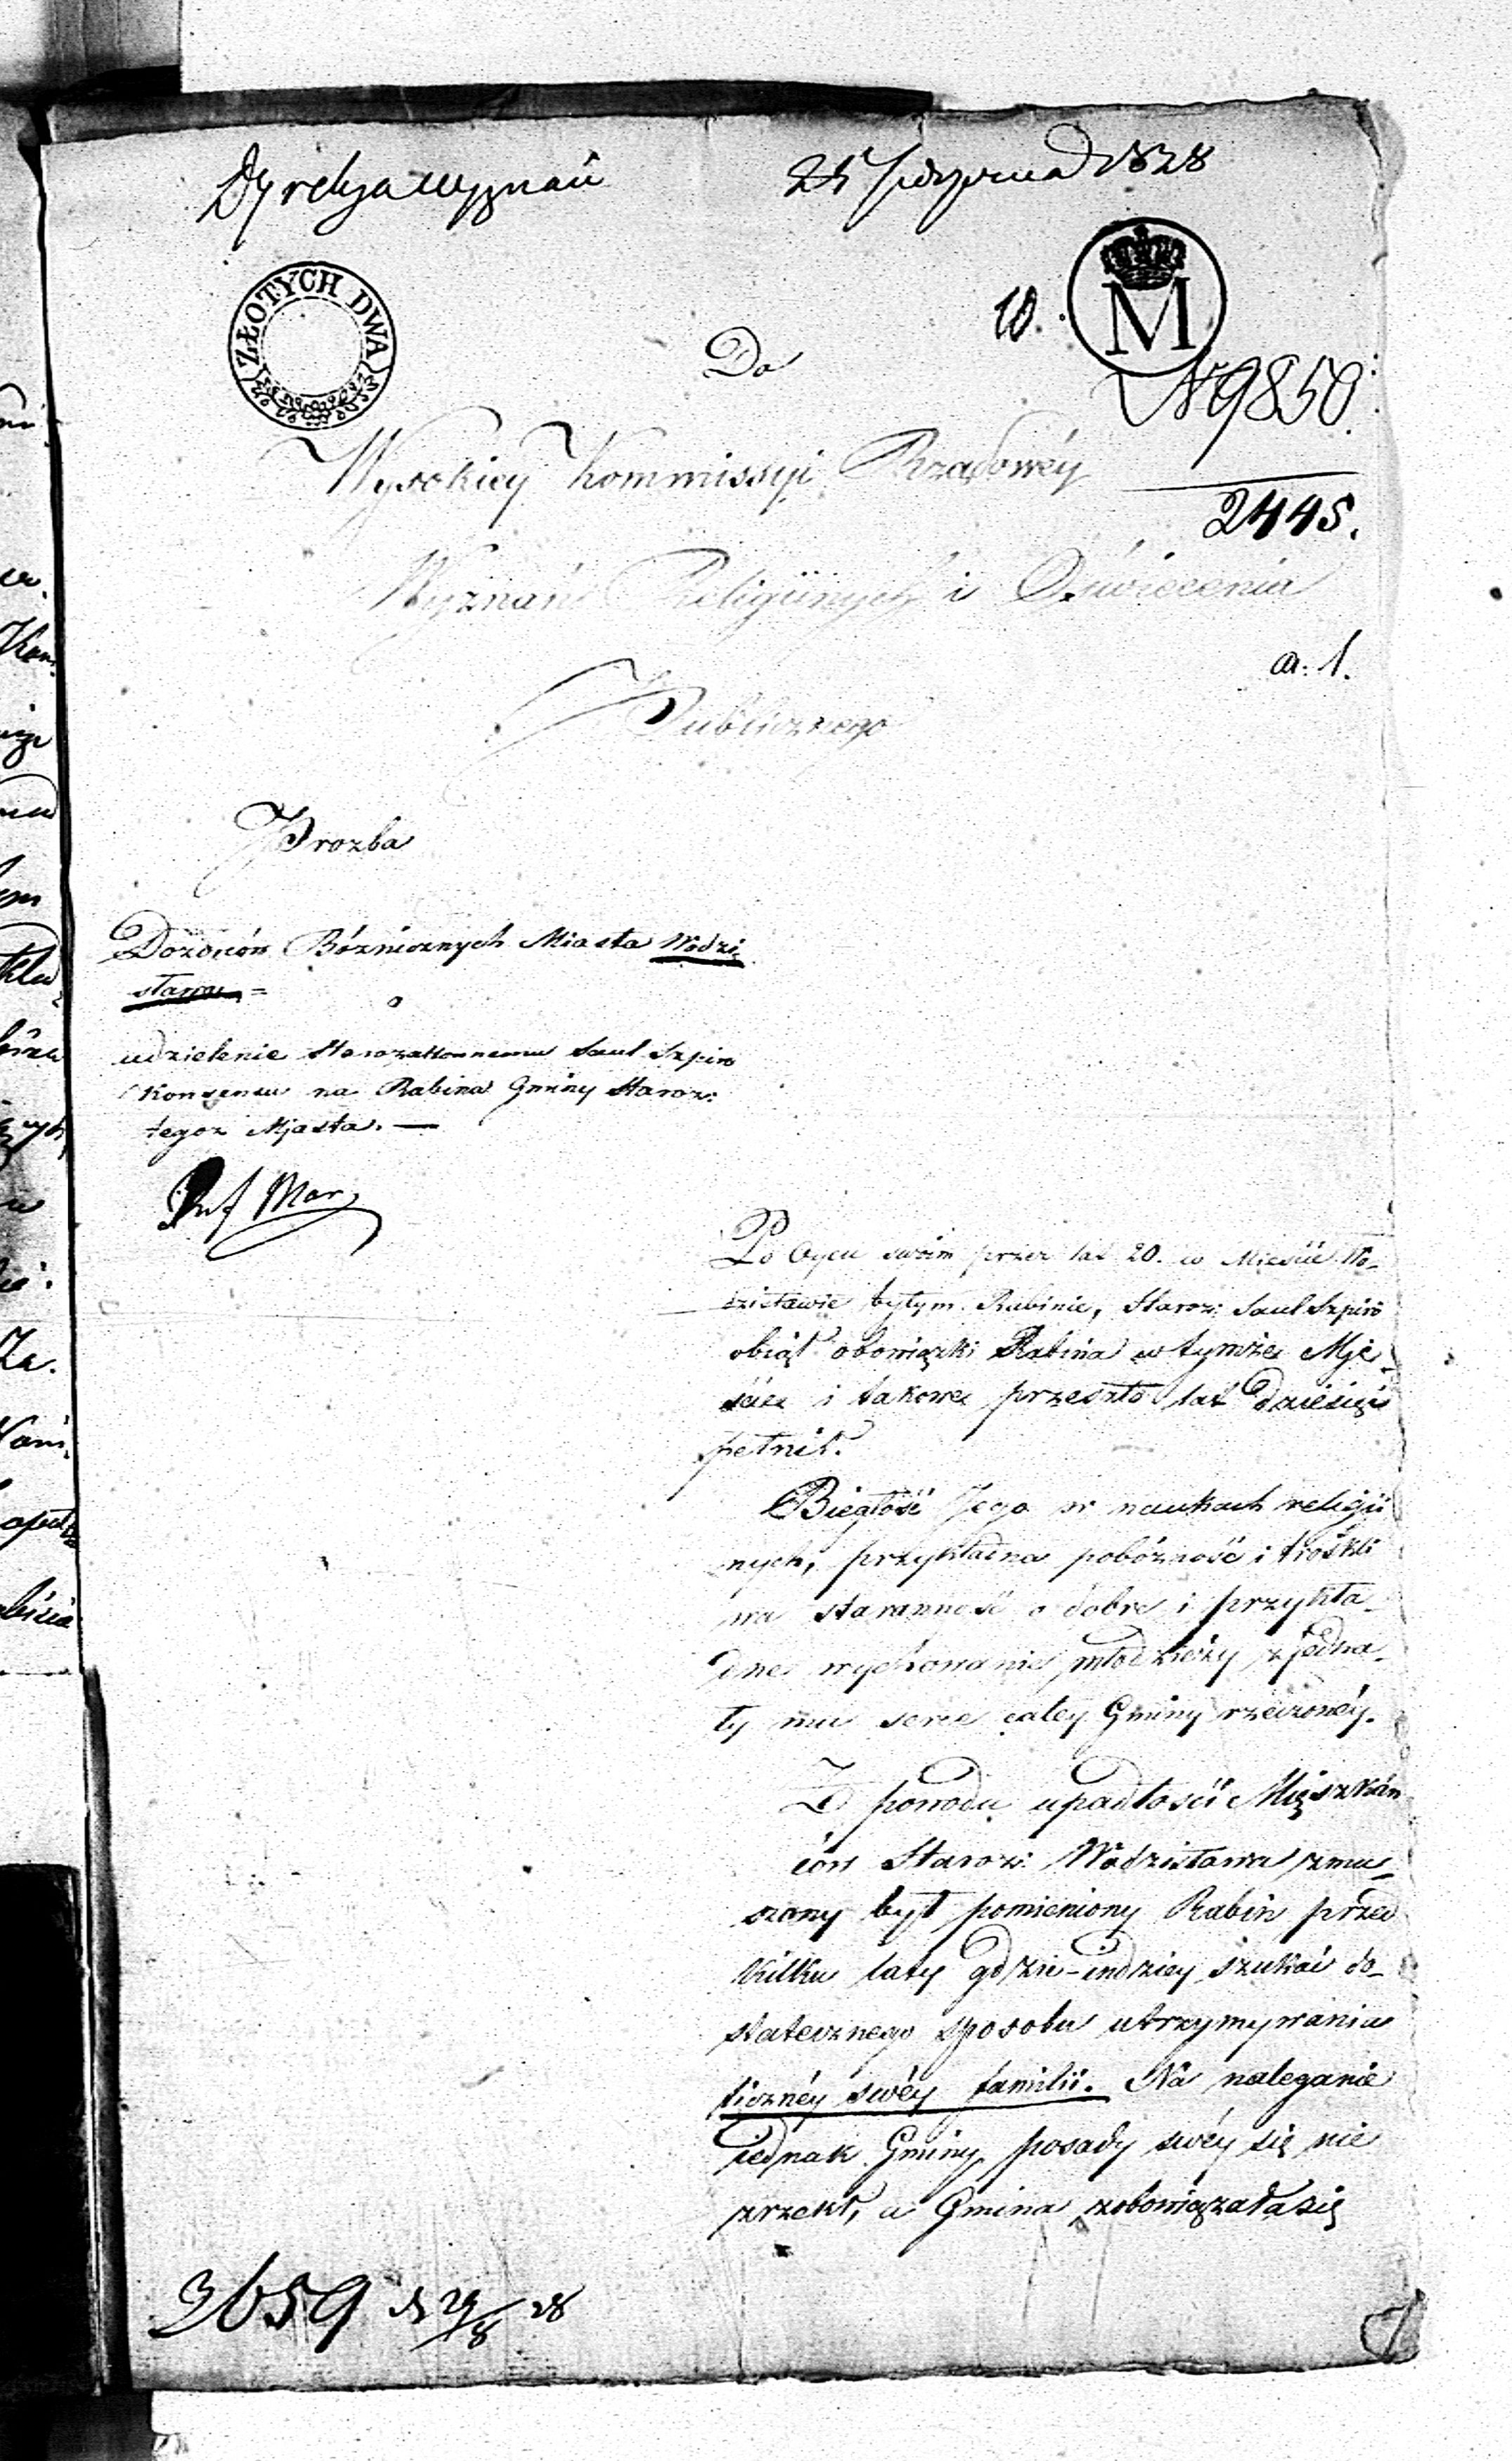 Dyrekcya wyznań
25 Sierpnia 1828
ZŁOTYCH DWA
10.
M
Do
N 9850.
Wysokiey Kommissyi Rządowéy
2445.
Wyznań Religiinych i Oświecenia
a: 1.
Publicznego
Prozba
Dozorców Bóżnicznych Miasta Wodzi-
sławia =
o
udzielenie Starozakonnemu Saul Szpiro
Konsensu na Rabina Gminy Staroz:
tegoz Mjasta. —
Po Oycu swoim przez lat 20. w Mieście Wo-
dzisławie byłym Rabinie, Staroz: Saul Szpiro
obiął obowiązki Rabina w tymże Mje-
ście i takowe przeszło lat dziesięć
pełnił.
Biegłość Jego w naukach religii
nych, przykładna pobóżność i troskli
wa staranność o dobre i przykła-
dne wychowanie młodzieży zjedna-
ły mu serce całey Gminy rzeczonéy.
Z powodu upadłości Mięszkań
ców Staroz: Wodzisławia zmu-
szony był pomieniony Rabin przed
kilku laty gdzie-indziey szukać do-
statecznego sposobu utrzymywania
licznéy swéy familii. Na naleganie
iednak Gminy posady swéy się nie
zrzekł, a Gmina zobowiązała się
3659 d 29/8 28